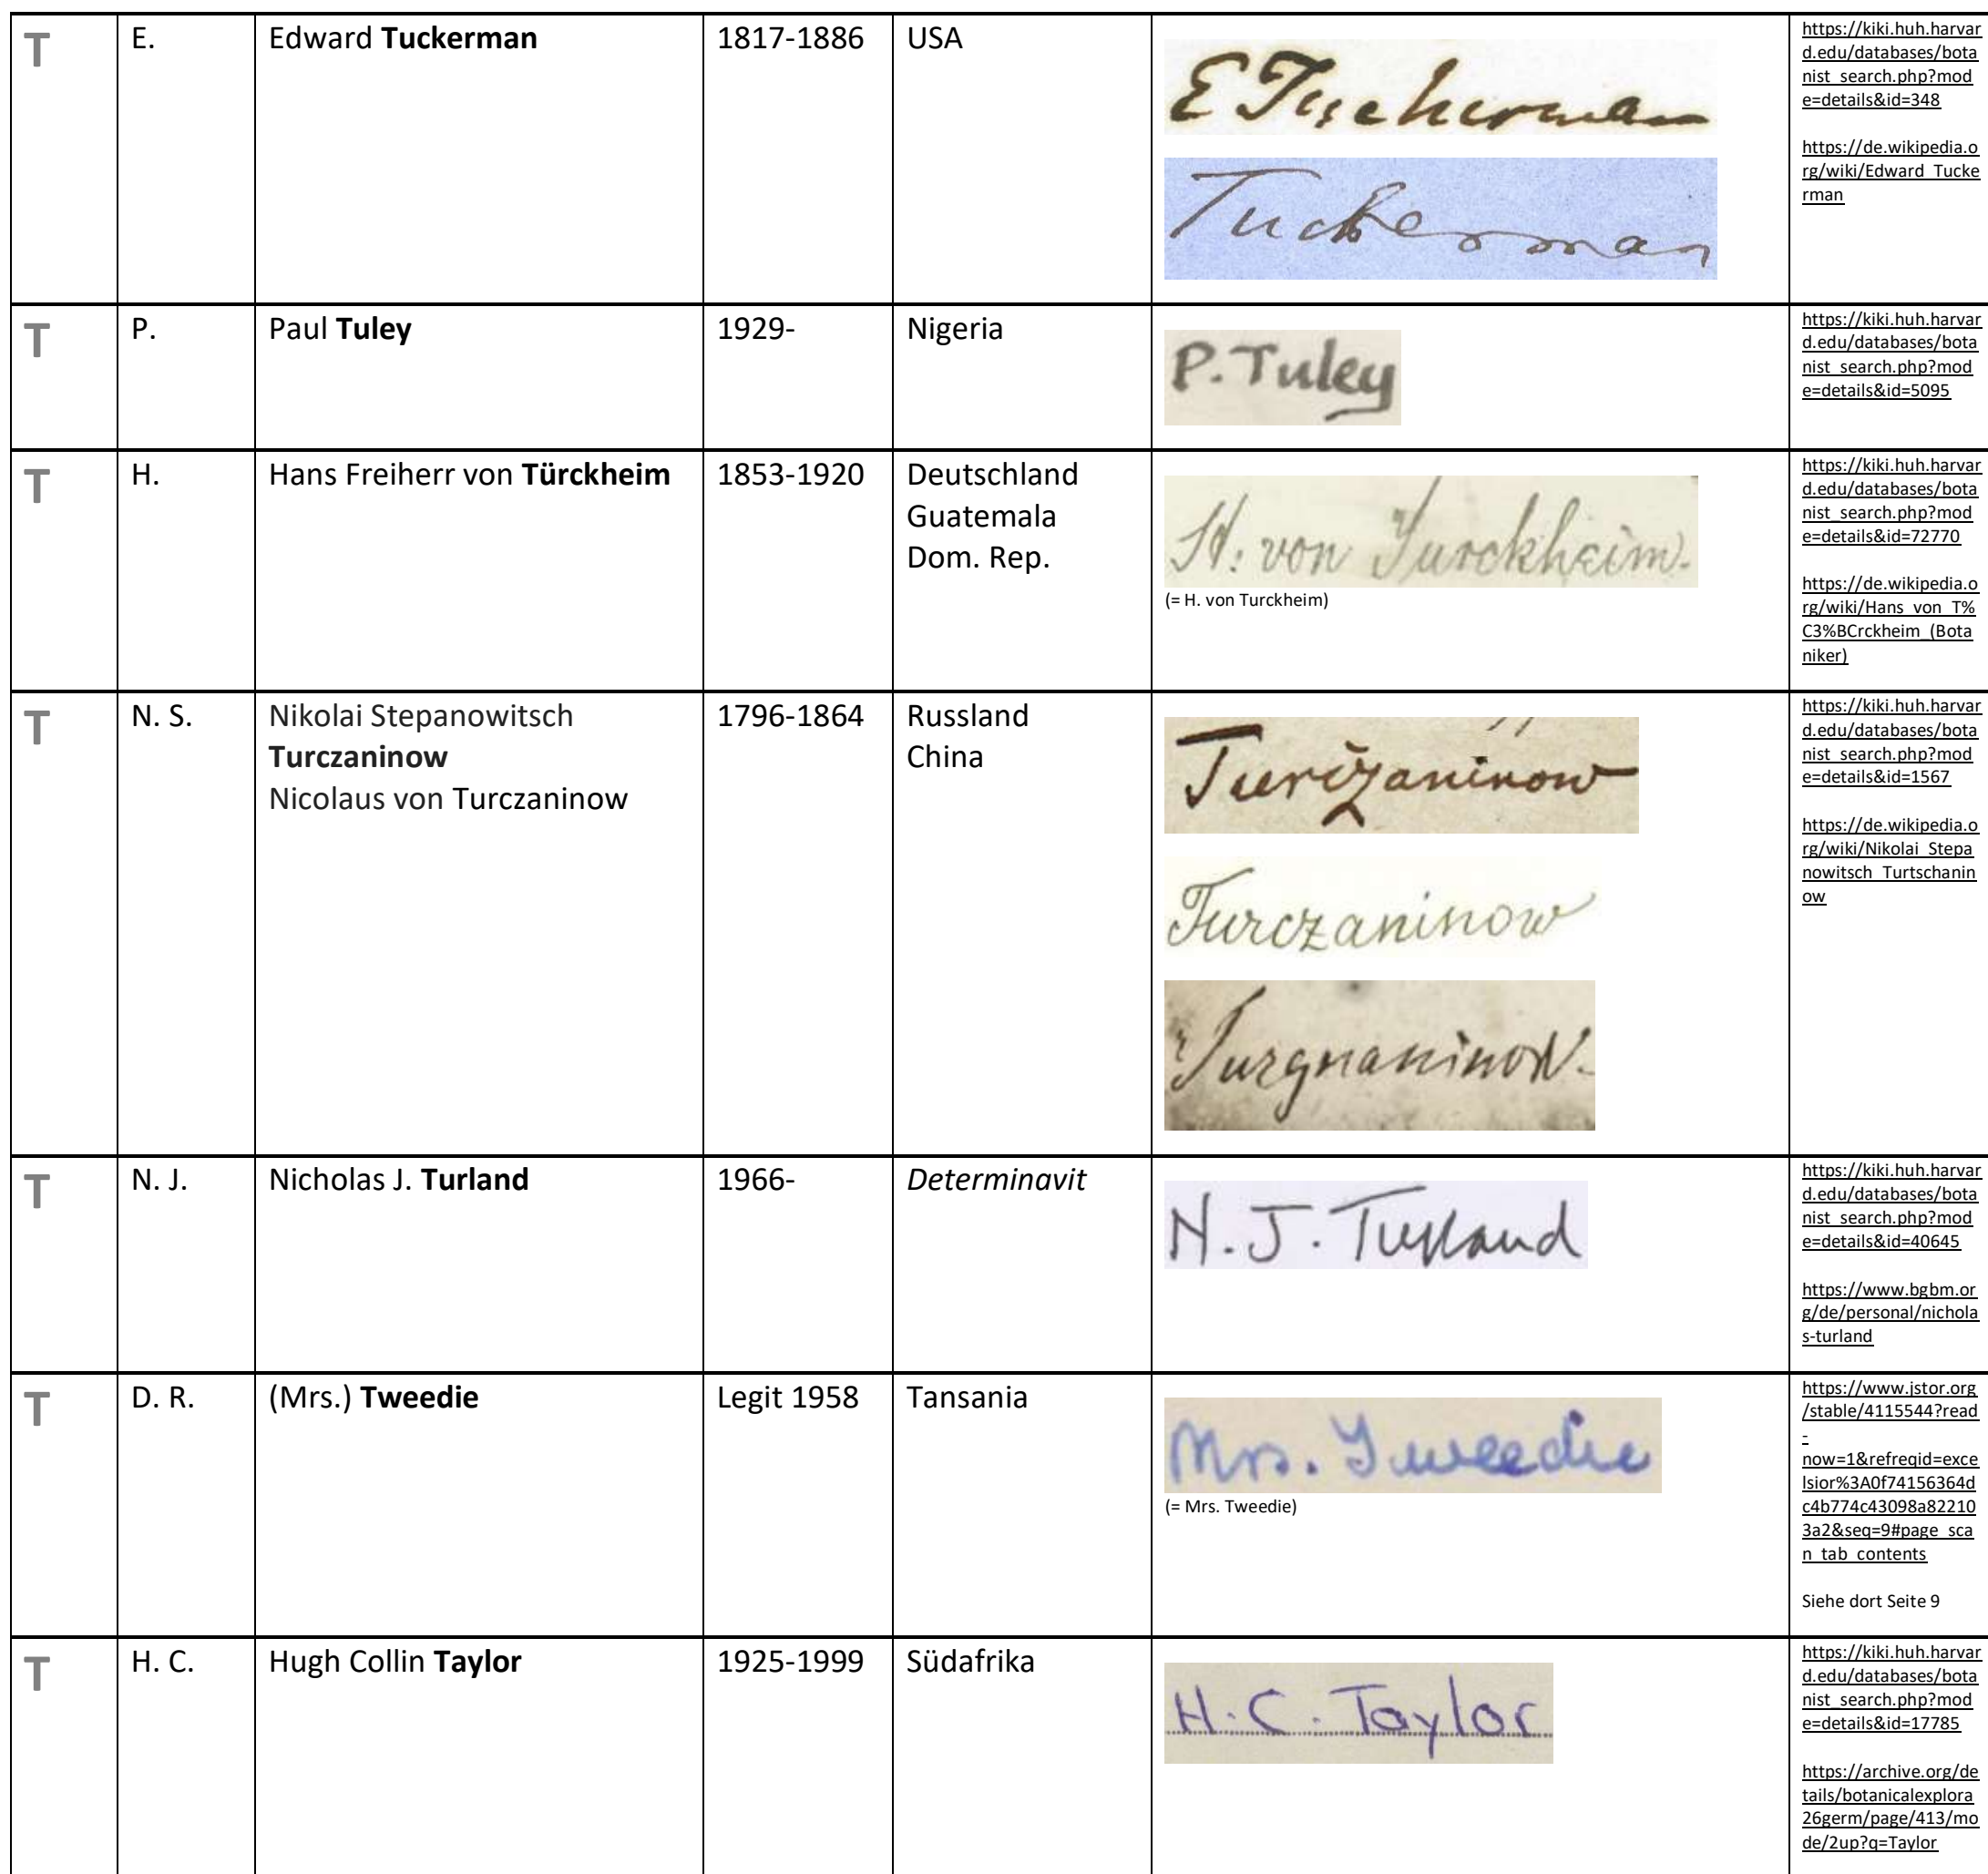 T E. Edward Tuckerman 1817-1886 USA
E Tuckerman
Tuckerman
https://kiki.huh.harvar
d.edu/databases/bota
nist_search.php?mod
e=details&id=348
https://de.wikipedia.o
rg/wiki/Edward_Tucke
rman
T P. Paul Tuley 1929- Nigeria
P. Tuley
https://kiki.huh.harvar
d.edu/databases/bota
nist_search.php?mod
e=details&id=5095
T H. Hans Freiherr von Türckheim 1853-1920 Deutschland
Guatemala
Dom. Rep.
H. von Turckheim.
(= H. von Turckheim)
https://kiki.huh.harvar
d.edu/databases/bota
nist_search.php?mod
e=details&id=72770
https://de.wikipedia.o
rg/wiki/Hans_von_T%
C3%BCrckheim_(Bota
niker)
T N. S. Nikolai Stepanowitsch 1796-1864 Russland
Turczaninow China
Nicolaus von Turczaninow
Turczaninow
Turczaninow
https://kiki.huh.harvar
d.edu/databases/bota
nist_search.php?mod
e=details&id=1567
https://de.wikipedia.o
rg/wiki/Nikolai_Stepa
nowitsch_Turtschanin
ow
T N. J. Nicholas J. Turland 1966- Determinavit
N. J. Turland
https://kiki.huh.harvar
d.edu/databases/bota
nist_search.php?mod
e=details&id=40645
https://www.bgbm.or
g/de/personal/nichola
s-turland
T D. R. (Mrs.) Tweedie Legit 1958 Tansania
Mrs. Tweedie
(= Mrs. Tweedie)
https://www.jstor.org
/stable/4115544?read
-
now=1&refreqid=exce
lsior%3A0f74156364d
c4b774c43098a82210
3a2&seq=9#page_sca
n_tab_contents
Siehe dort Seite 9
T H. C. Hugh Collin Taylor 1925-1999 Südafrika
H. C. Taylor
https://kiki.huh.harvar
d.edu/databases/bota
nist_search.php?mod
e=details&id=17785
https://archive.org/de
tails/botanicalexplora
26germ/page/413/mo
de/2up?q=Taylor